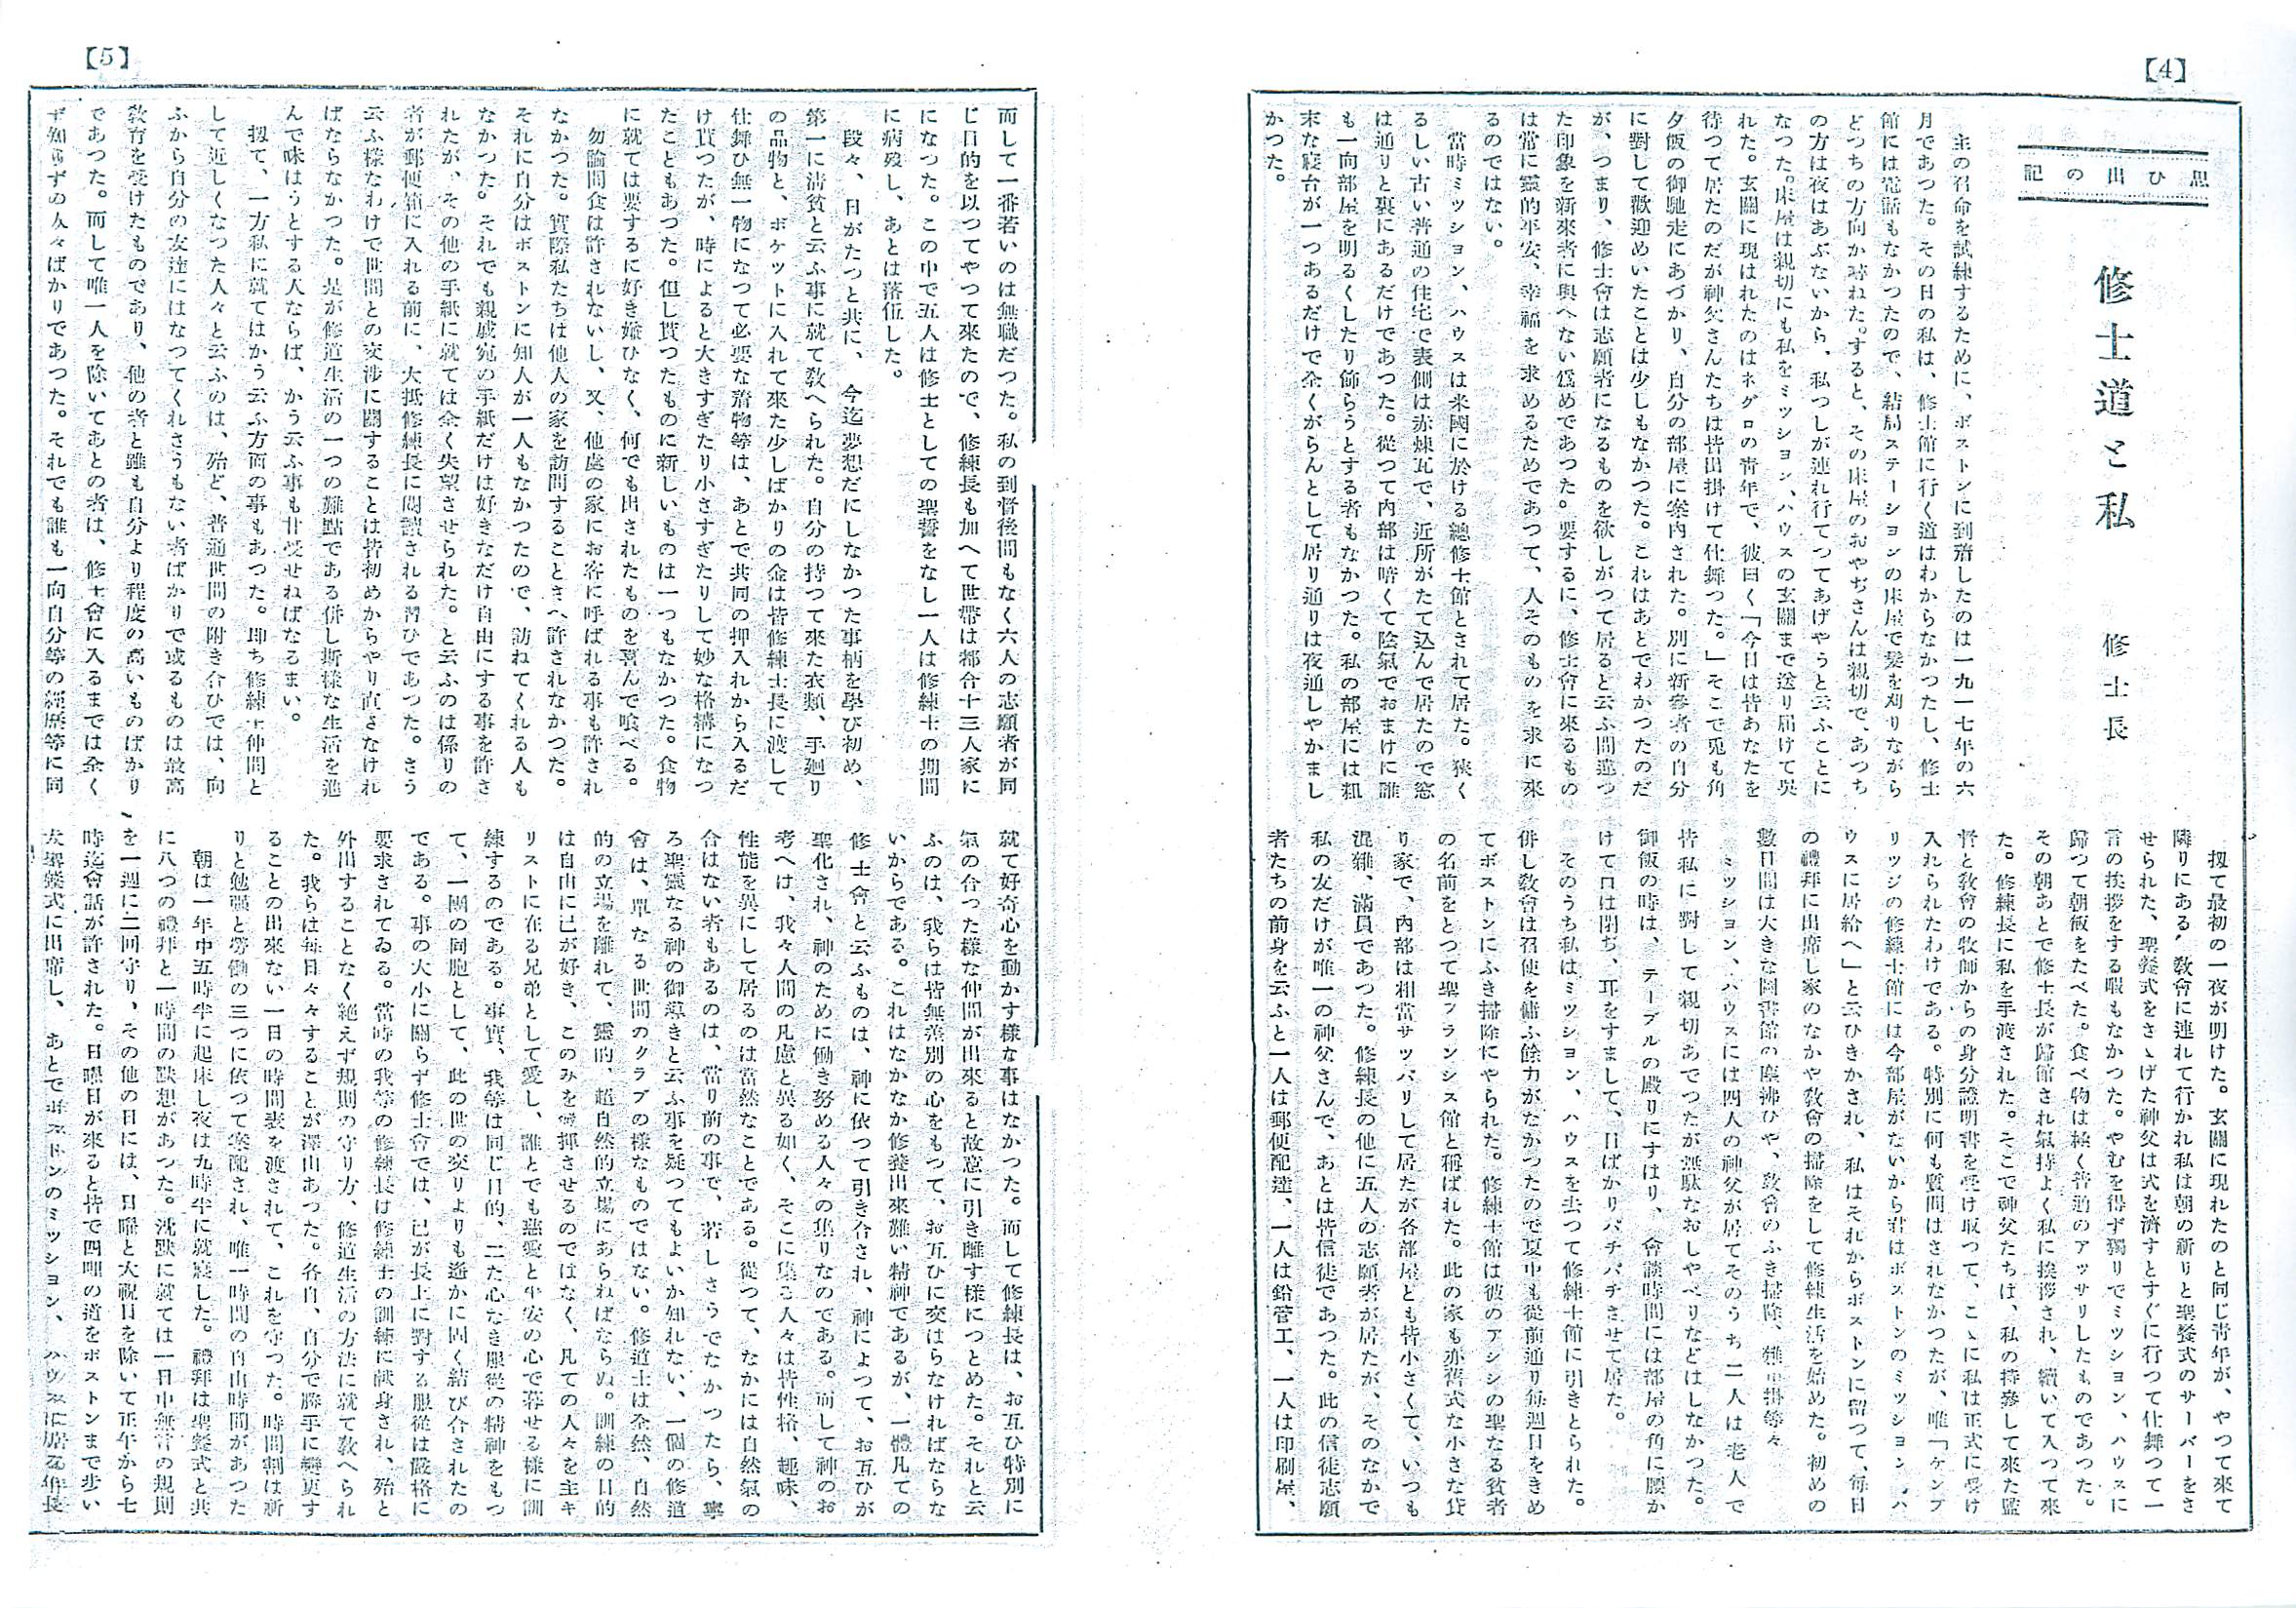 【4】
思ひ出の記
修士道と私
修士長
主の召命を試練するために、ボストンに到著したのは一九一七年の六
月であつた。その日の私は、修士館に行く道はわからなかつたし、修士
館には電話もなかつたので、結局ステーションの床屋で髪を刈りながら
どつちの方向か尋ねた。すると、その床屋のおやぢさんは親切で、あつち
の方は夜はあぶないから、私つしが連れ行てつてあげやうと云ふことに
なつた。床屋は親切にも私をミッション、ハウスの玄關まで送り届けて呉
れた。玄關に現はれたのはネグロの青年で、彼曰く「今日は皆あなたを
待つて居たのだが神父さんたちは皆出掛けて仕舞つた。」そこで兎も角
夕飯の御馳走にあづかり、自分の部屋に案内された。別に新參者の自分
に對して歡迎めいたことは少しもなかつた。これはあとでわかつたのだ
が、つまり、修士會は志願者になるものを欲しがつて居ると云ふ間違つ
た印象を新來者に與へない爲めであつた。要するに、修士會に來るもの
は常に靈的平安、幸福を求めるためであつて、人そのものを求に來
るのではない。
當時ミッション、ハウスは米國に於ける總修士館とされて居た。狹く
るしい古い普通の住宅で表側は赤煉瓦で、近所がたて込んで居たので窓
は通りと裏にあるだけであつた。從つて内部は暗くて陰氣でおまけに誰
も一向部屋を明るくしたり飾らうとする者もなかつた。私の部屋には粗
末な寢台が一つあるだけで全くがらんとして居り通りは夜通しやかまし
かつた。
扨て最初の一夜が明けた。玄關に現れたのと同じ青年が、やつて來て
隣りにある、敎會に連れて行かれ私は朝の祈りと聖餐式のサーバーをさ
せられた、聖餐式をさゝげた神父は式を濟すとすぐに行つて仕舞つて一
言の挨拶をする暇もなかつた。やむを得ず獨りでミッション、ハウスに
歸つて朝飯をたべた。食べ物は極く普通のアッサリしたものであつた。
その朝あとで修士長が歸館され氣持よく私に挨拶され、續いて入つて來
た。修練長に私を手渡された。そこで神父たちは、私の持參して來た監
督と敎會の牧師からの身分證明書を受け取つて、こゝに私は正式に受け
入れられたわけである。特別に何も質問はされなかつたが、唯「ケンブ
リッジの修練士館には今部屋がないから君はボストンのミッション、ハ
ウスに居給へ」と云ひきかされ、私はそれからボストンに留つて、毎日
の禮拜に出席し家のなかや敎會の掃除をして修練生活を始めた。初めの
數日間は大きな圖書館の塵拂ひや、敎會のふき掃除、雜巾掛等々
ミッション、ハウスには四人の神父が居てそのうち二人は老人で
皆私に對して親切あでつたが無駄なおしやべりなどはしなかつた。
御飯の時は、テーブルの殿りにすはり、會談時間には部屋の角に腰か
けて口は閉ち、耳をすまして、目ばかりパチパチさせて居た。
そのうち私はミッション、ハウスを去つて修練士館に引きとられた。
併し敎會は召使を傭ふ餘力がなかつたので夏中も從前通り毎週日をきめ
てボストンにふき掃除にやられた。修練士館は彼のアシシの聖なる貧者
の名前をとつて聖フランシス館と稱ばれた。此の家も亦舊式な小さな貸
り家で、内部は相當サッパリして居たが各部屋ども皆小さくて、いつも
混雜、滿員であつた。修練長の他に五人の志願者が居たが、そのなかで
私の友だけが唯一の神父さんで、あとは皆信徒であつた。此の信徒志願
者たちの前身を云ふと一人は郵便配達、一人は鉛管工、一人は印刷屋、
【5】
而して一番若いのは無職だつた。私の到著後間もなく六人の志願者が同
じ目的を以つてやつて來たので、修練長も加へて世帶は都合十三人家に
になつた。この中で五人は修士としての聖誓をなし一人は修練士の期間
に病歿し、あとは落伍した。
段々、日がたつと共に、今迄夢想だにしなかつた事柄を學び初め、
第一に清貧と云ふ事に就て敎へられた。自分の持つて來た衣類、手廻り
の品物と、ポケットに入れて來た少しばかりの金は皆修練士長に渡して
仕舞ひ無一物になつて必要な着物等は、あとで共同の押入れから入るだ
け貰つたが、時によると大きすぎたり小さすぎたりして妙な格構になつ
たこともあつた。但し貰つたものに新しいものは一つもなかつた。食物
に就ては要するに好き嫌ひなく、何でも出されたものを喜んで喰べる。
勿論間食は許されないし、又、他處の家にお客に呼ばれる事も許され
なかつた。實際私たちは他人の家を訪問することさへ許されなかつた。
それに自分はボストンに知人が一人もなかつたので、訪ねてくれる人も
なかつた。それでも親戚宛の手紙だけは好きなだけ自由にする事を許さ
れたが、その他の手紙に就ては全く失望させられた。と云ふのは係りの
者が郵便箱に入れる前に、大抵修練長に閲讀される習ひであつた。さう
云ふ樣なわけで世間との交渉に關することは皆初めからやり直さなけれ
ばならなかつた。是が修道生活の一つの難點である併し斯樣な生活を進
んで味はうとする人ならば、かう云ふ事も甘受せねばなるまい。
扨て、一方私に就てはかう云ふ方面の事もあつた。即ち修練士仲間と
して近しくなつた人々と云ふのは、殆ど、普通世間の附き合ひでは、向
ふから自分の友達にはなつてくれさうもない者ばかりで或るものは最高
敎育を受けたものであり、他の者と雖も自分より程度の高いものばかり
であつた。而して唯一人を除いてあとの者は、修士會に入るまでは全く
ず知らずの人々ばかりであつた。それでも誰も一向自分等の經歷等に同
就て好奇心を動かす樣な事はなかつた。而して修練長は、お互ひ特別に
氣の合つた樣な仲間が出來ると故意に引き離す樣につとめた。それと云
ふのは、我らは皆無差別の心をもつて、お互ひに交はらなければならな
いからである。これはなかなか修養出來難い精神であるが、一體凡ての
修士會と云ふものは、神に依つて引き合され、神によつて、お互ひが
聖化され、神のために働き努める人々の集りなのである。而して神のお
考へは、我々人間の凡慮と異る如く、そこに集ふ人々は皆性格、趣味、
性能を異にして居るのは當然なことである。從つて、なかには自然氣の
合はない者もあるのは、當り前の事で、若しさうでなかつたら、寧
ろ聖靈なる神の御導きと云ふ事を疑つてもよいか知れない、一個の修道
會は、單なる世間のクラブの樣なものではない。修道士は全然、自然
的の立場を離れて、靈的、超自然的立場にあらねばならぬ。訓練の目的
は自由に己が好き、このみを發揮させるのではなく、凡ての人々を主キ
リストに在る兄弟として愛し、誰とでも慈愛と平安の心で暮せる樣に訓
練するのである。事實、我等は同じ目的、二た心なき服從の精神をもつ
て、一團の同胞として、此の世の交りよりも遙かに固く結び合されたの
である。事の大小に關らず修士會では、己が長上に對する服從は嚴格に
要求されてゐる。當時の我等の修練長は修練士の訓練に献身され、殆と
外出することなく絶えず規則の守り方、修道生活の方法に就て敎へられ
た。我らは毎日々々することが澤山あつた。各自、自分で勝手に變更す
ることの出來ない一日の時間表を渡されて、これを守つた。時間割は祈
りと勉強と勞働の三つに依つて案配され、唯一時間の自由時間があつた
朝は一年中五時半に起床し夜は九時半に就寢した。禮拜は聖餐式と共
に八つの禮拜と一時間の默想があつた。沈默に就ては一日中無言の規則
を一週に二回守り、その他の日には、日曜と大祝日を除いて正午から七
時迄會話が許された。日曜日が來ると皆で四哩の道をボストンまで歩い
大聖餐式に出席し、あとでボストンのミッション、ハウスに居る修士長